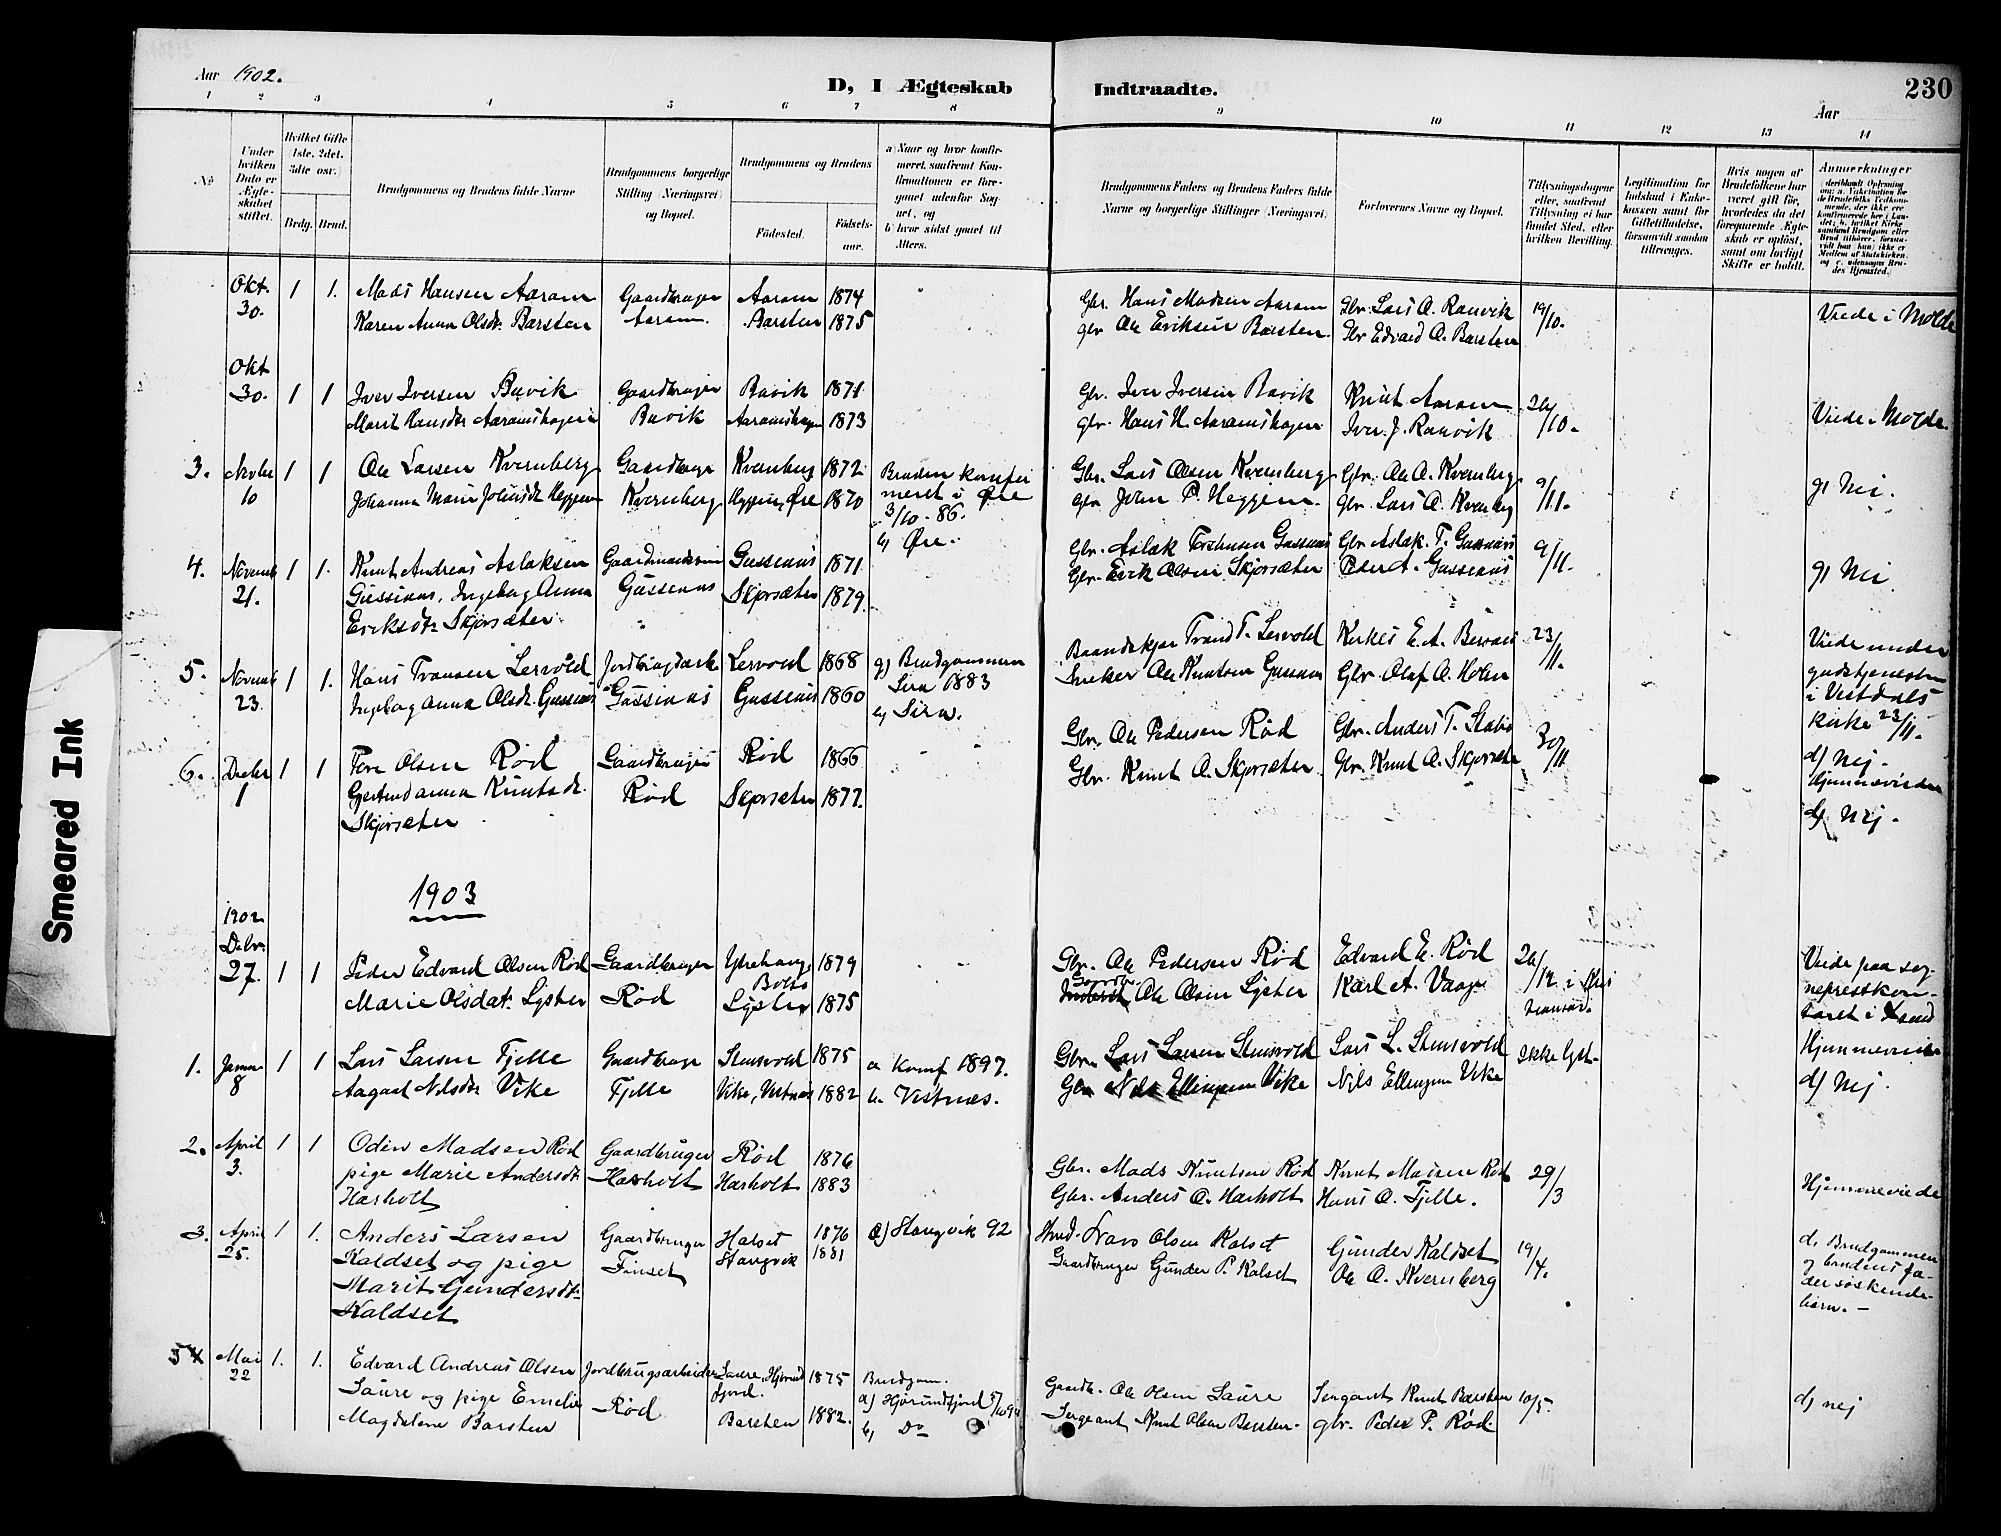 Aar 1902.
D, I Ægteskab Indtraadte.
230
Aar
1 2 3 4 5 6 7 8 9 10 11 12 13 14
No
Under hvilken Dato er Ægteskabet stiftet.
Hvilket Gifte (1ste, 2det, 3die osv.)
Brdg. Brud.
Brudgommens og Brudens fulde Navne
Brudgommens borgerlige Stilling (Næringsvei) og Bopæl.
Brudgommens og Brudens
Fødested. Fødselsaar.
a) Naar og hvor konfirmeret, saafremt Konfirmationen er foregaaet udenfor Sognet, og
b) hvor sidst gaaet til Alters.
Brudgommens Faders og Brudens Faders fulde Navne og borgerlige Stillinger (Næringsvei).
Forlovernes Navne og Bopæl.
Tillysningsdagene eller, saafremt Tillysning ei har fundet Sted, efter hvilken Bevilling.
Legitimation for Indskud i Enkekassen samt for Giftetilladelse, forsaavidt saadan tiltrænges.
Hvis nogen af Brudefolkene har været gift før, hvorledes da det foregaaende Ægteskab er opløst, samt om lovligt Skifte er holdt.
Anmærkninger
Okt. 30. 1 1. Mads Hansen Aaram Gaardbruger Aaram 1874 Gbr. Hans Madsen Aaram Gbr. Lars A. Ranvik 19/10. Viede i Molde
Karen Anna Olsdt. Barsten Aaram. Barsten 1875 gbr Ole Eriksen Barsten. Gbr Edvard A. Barsten
Okt 30. 1 1 Iver Iversen Bavik Gaardbruger Bavik 1871 Gbr. Iver Iversen Bavik Knut Aaram 26/10. Viede i Molde.
Marit Hansdtr Aaramshagen Bavik Aaramshagen 1873 gbr. Hans H. Aaramshagen Iver J. Ranvik
3. Novbr 10 1 1 Ole Larsen Kvernberg Gaardbruger Kvernberg 1872 Bruden konfir Gbr. Lars Olsen Kvernberg Gbr. Ole A. Kvernberg 9/11. g) Nei.
Johanna Marie Johnsdtr Heggem Kvernberg Heggem, Øre 1870 meret i Øre gbr John P. Heggem. Gbr. Lars A. Kvernberg
3/10. 86.
b) Øre.
4. Novemb 21. 1 1. Knut Andreas Aslaksen Gussiaas 1871. Gbr. Aslak Gussiaas Gbr Aslak. T. Gussiaas 9/11. g) Nei
Gussiaas, Ingeborg Anna Gussiaas Skjorsæter 1879. Gbr. Erik Olsen Skjorsæter Peder A. Gussiaas
Eriksdtr Skjorsæter.
5. Novemb 23. 1 1. Hans Lervold Lervold 1868 g) Brudgommen Trond T. Lervold 23/11. Viede under
Ingeborg Anna Olsdt. Gussiaas Gussiaas Gussiaas 1860 Sira 1883 Snekker Ole Knutsen Gussiaas Gbr. Olaf A. Holm gudstjenesten
b) Sira. i Vistdals
kirke 23/11.
d) Nej.
6. Decbr 1 1 1 Tore Olsen Rød Gaardbruger Rød 1866 Gbr. Ole Pedersen Rød Gbr. Anders T. 30/11 Hjemmeviede
Gjertrud Anna Knutsdt. Rød Skjorsæter 1877. Gbr. Knut A. Skjorsæter Gbr. Knut A. Skjorsæter d) Nej.
Skjorsæter
1903
1902
Debr. 27. 1 1 Peder Edvard Olsen Rød Gaardbruger 1879 Gbr. Ole Pedersen Rød Edvard E. Rød 26/12 i Viede paa sog
Bolsø
Marie Olsdat. Lyster Rød Lyster 1875 Ole Olsen Lyster Karl A. Vaage nepresskon
toret i
1. Januar 8 1 1 Lars Larsen Fjelle Gaardbruger Stensvold 1875 a Konf 1897. Gbr. Lars Larsen Stensvold Lars L. Stensvold Ikke lyst. Hjemmeviede
Aagaat Nilsdtr Vike Fjelle Vike, Vestnes 1882 b. Vestnes. Gbr Nils Ellingsen Vike Nils Ellingsen Vike d) Nej.
2. April 3. 1 1 Odin Madsen Rød Gaardbruger Rød 1876 Gbr. Mads Knutsen Rød Knut Madsen Rød 29/3 Hjemmeviede
pige Marie Andersdt. Harholt Harholt 1883 Gbr. Anders O. Harholt Hans O. Fjelle.
Harholt
3. April 25. 1 1. Anders Larsen Gaardbruger Halset 1876 a) Stangvik 92 Lars Olsen Kalset Gunder Kaldset 19/4. d. Brudgommen
Kaldset og pige Finset Stangvik 1881 Gaardbruger Gunder P. Kalset Ole O. Kvernberg og brudens fa-
Marit Gundersdt. der søskende-
Kaldset barn. –
5 4 Mai 22 1. 1. Edvard Andreas Olsen Jordbrugsarbeider Saure, Hjørund 1875 Brudgom. Gaardb. Ole Olsen Saure Sergeant Knut Barsten 10/5. d) nej
fjord.
Saure og pige Emelie Rød Barsten 1882. a) Hjørundfjord Sergeant Knut Olsen Barsten. gbr. Peder P. Rød.
Magdalene Barsten b) Do
Smeared Ink